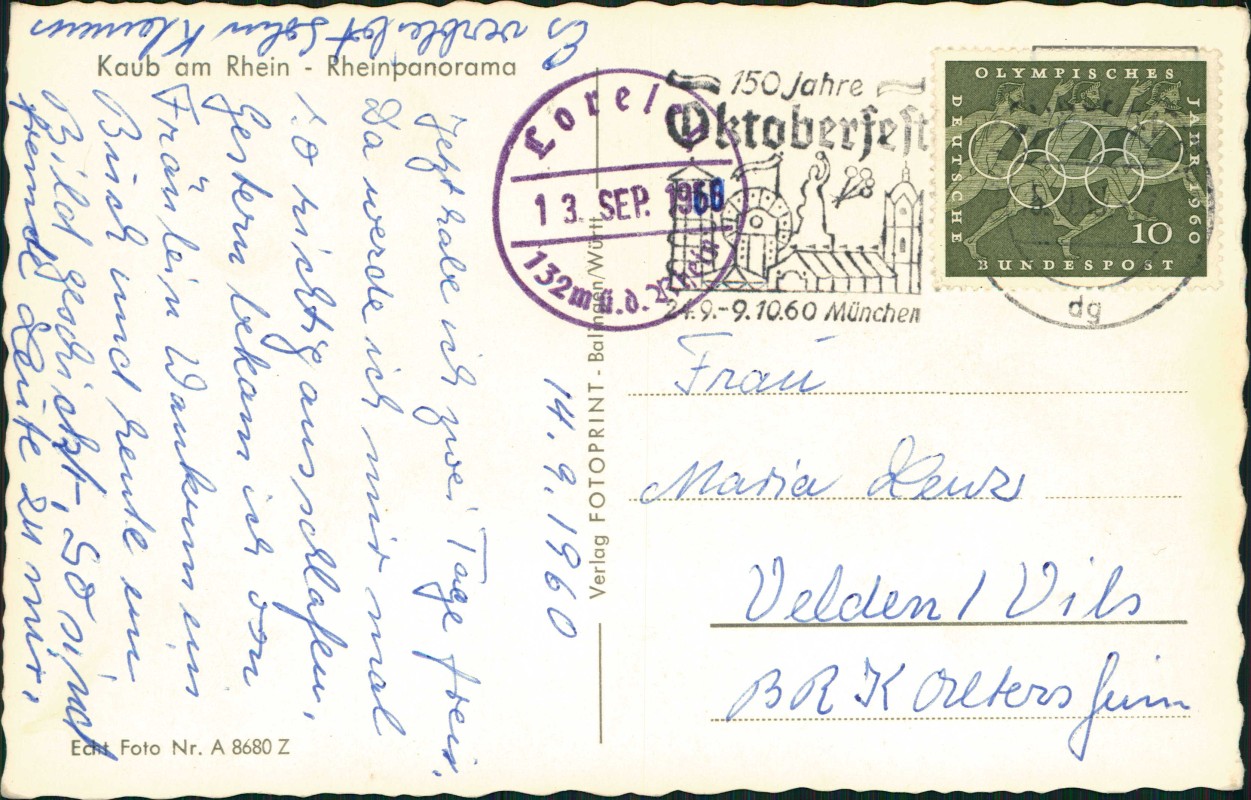 Kaub am Rhein - Rheinpanorama
14. 9. 1960
Jetzt habe ich zwei Tage frei.
Da werde ich mir mal
so richtig ausschlafen,
Gestern bekam ich von
Fräulein Dankum ein
Buch und heute ein
Bild geschickt, So sind
fremde Leute zu mir.
Es verbleibt Sohn Klemens
Echt Foto Nr. A 8680 Z
Verlag FOTOPRINT - Balingen/Württ.
Lorel
13. SEP. 1960
132m ü.d. Rhein
150 Jahre
Oktoberfest
24.9.-9.10.60 München
OLYMPISCHES
JAHR 1960
DEUTSCHE
BUNDESPOST
10
dg
Frau
Maria Lenz
Velden / Vils
BRK Altersheim